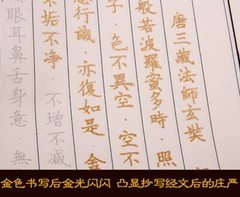 唐三藏法師玄奘
般若波羅蜜多時·照
子·色不異空·空不
行識·亦復如是·舍
不垢不净 不增不減
眼耳鼻舌身意 無
金色书写后金光闪闪 凸显抄写经文后的庄严